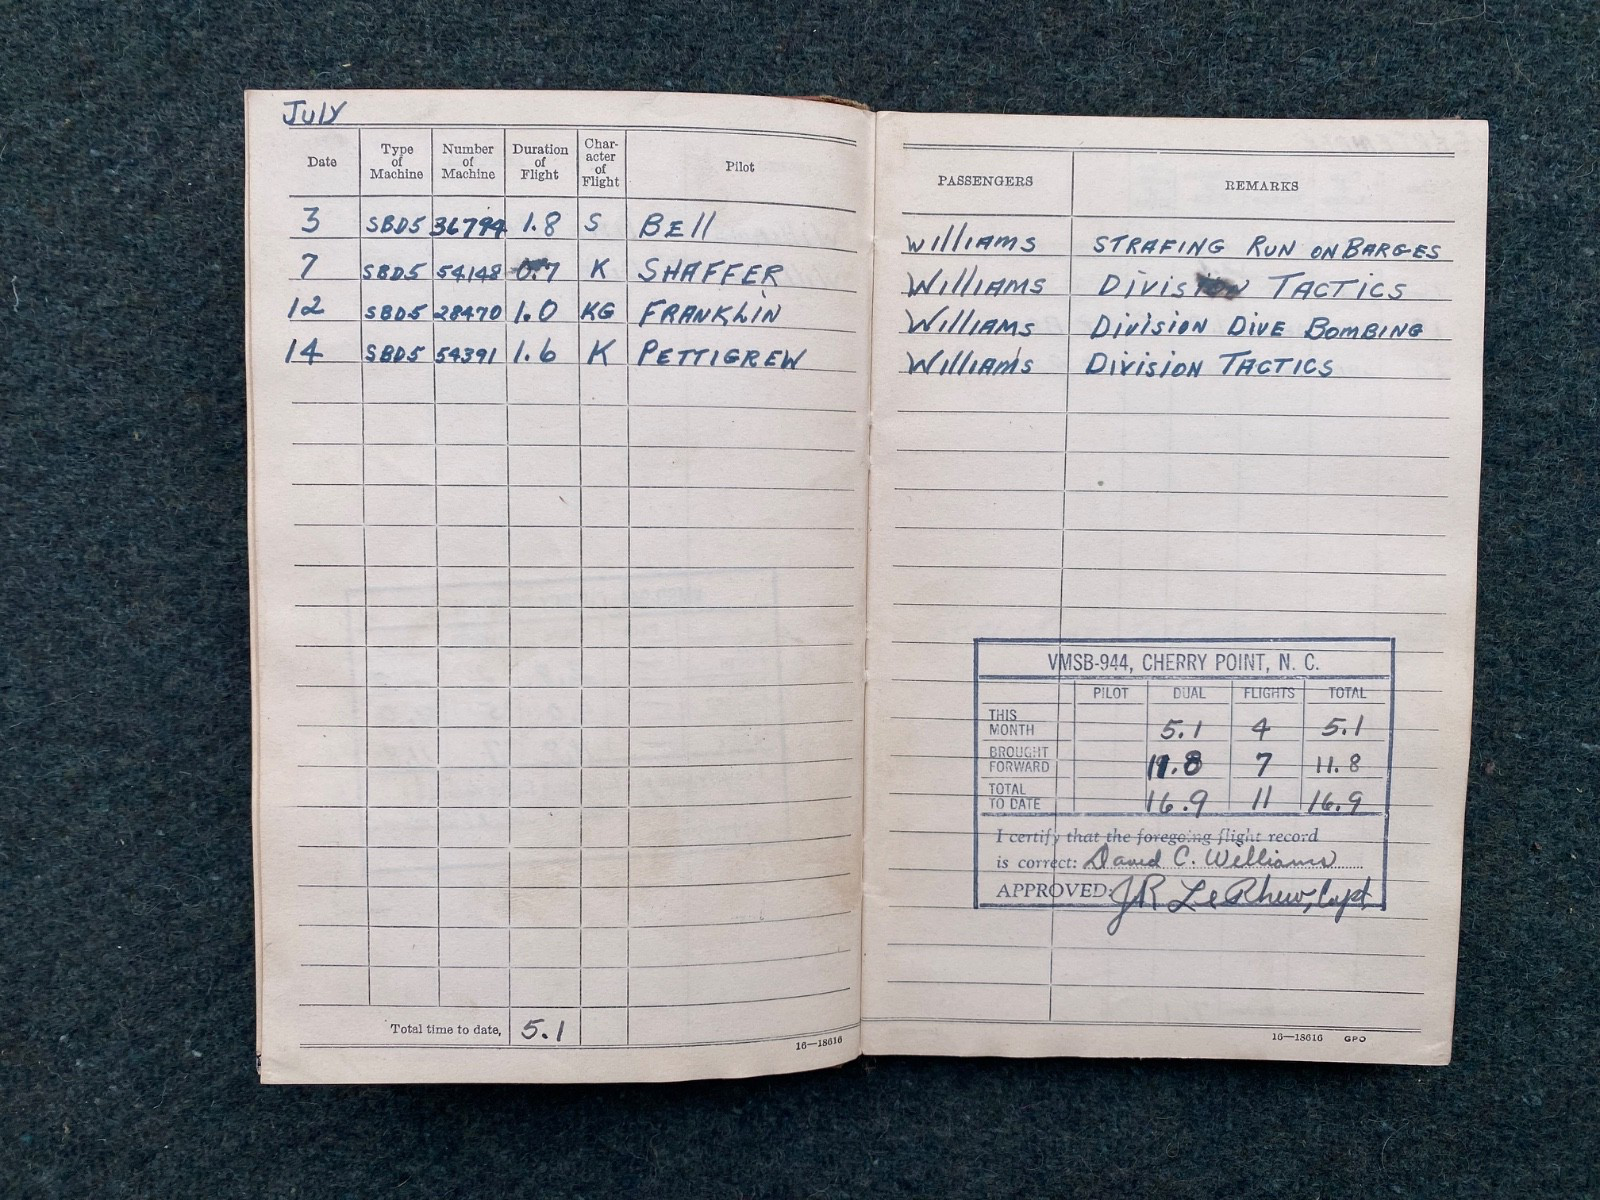 July
Date Type of Machine Number of Machine Duration of Flight Char-acter of Flight Pilot
3 SBD5 36794 1.8 S BEll
7 SBD5 54148 0.7 K SHAFFER
12 SBD5 28470 1.0 KG FRANKLIN
14 SBD5 54391 1.6 K PETTIGREW
Total time to date, 5.1
16—18616
PASSENGERS REMARKS
Williams STRAFING RUN ON BARGES
Williams Division TACTICS
Williams Division Dive Bombing
Williams Division TACTICS
VMSB-944, CHERRY POINT, N. C.
PILOT DUAL FLIGHTS TOTAL
THIS MONTH 5.1 4 5.1
BROUGHT FORWARD 11.8 7 11.8
TOTAL TO DATE 16.9 11 16.9
I certify that the foregoing flight record
is correct: David C. Williams
APPROVED: JR LeRhew, Capt.
16—18616 GPO